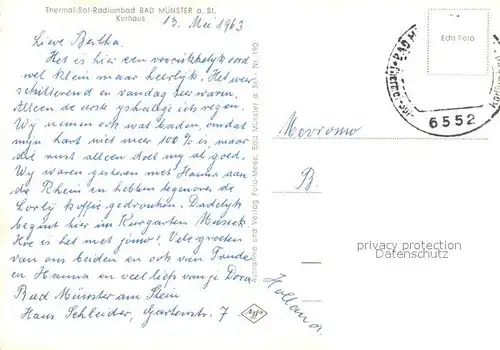 Thermal-Sol-Radiumbad BAD MÜNSTER a. St.
Kurhaus
13. Mei 1963
Lieve Bertha.
Het is hier een verrukkelijk oord
wel klein maar heerlijk. Het weer
schitterend en vandag zeer warm.
Alleen de eerste ijsheilige iets regen.
Wij nemen ook wat baden, omdat
mijn hart niet meer 100% is, maar
die rust alleen doet mij al goed.
Wij waren gisteren met Hanna aan
de Rhein en hebben tegenover de
Lorlij koffie gedronken. Dadelijk
begint hier im Kurgarten Musiek.
Hoe is het met jomo? Vele groeten
van ons beiden en ook van Trude
en Hanna en veel liefs van je Dora
Bad Münster am Stein
Haus Schleider, Gartenstr. 7
Aufnahme und Verlag Foto-Meese, Bad Münster a. St. Nr. 190
Echt Foto
BAD M
6552
Mevrouw
B.
Holland
privacy protected
Datenschutz